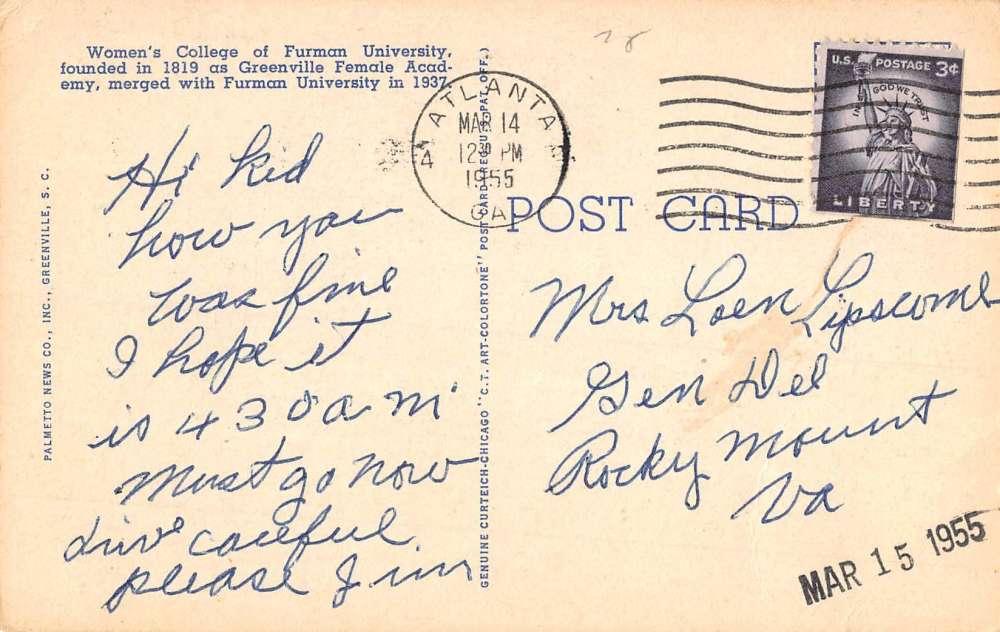 Women's College of Furman University,
founded in 1819 as Greenville Female Acad-
emy, merged with Furman University in 1937.
Hi kid
how you
was fine
I hope it
is 4 30 a m
must go now
drive careful
please Jim
PALMETTO NEWS CO., INC., GREENVILLE, S. C.
GENUINE CURTEICH-CHICAGO "C.T. ART-COLORTONE" POST CARD (REG. U.S. PAT. OFF.)
ATLANTA
MAR 14
12 30 PM
1955
GA
4
U.S. POSTAGE 3¢
IN GOD WE TRUST
LIBERTY
POST CARD
Mrs Loen Lipscomb
Gen Del
Rocky Mount
Va
MAR 15 1955